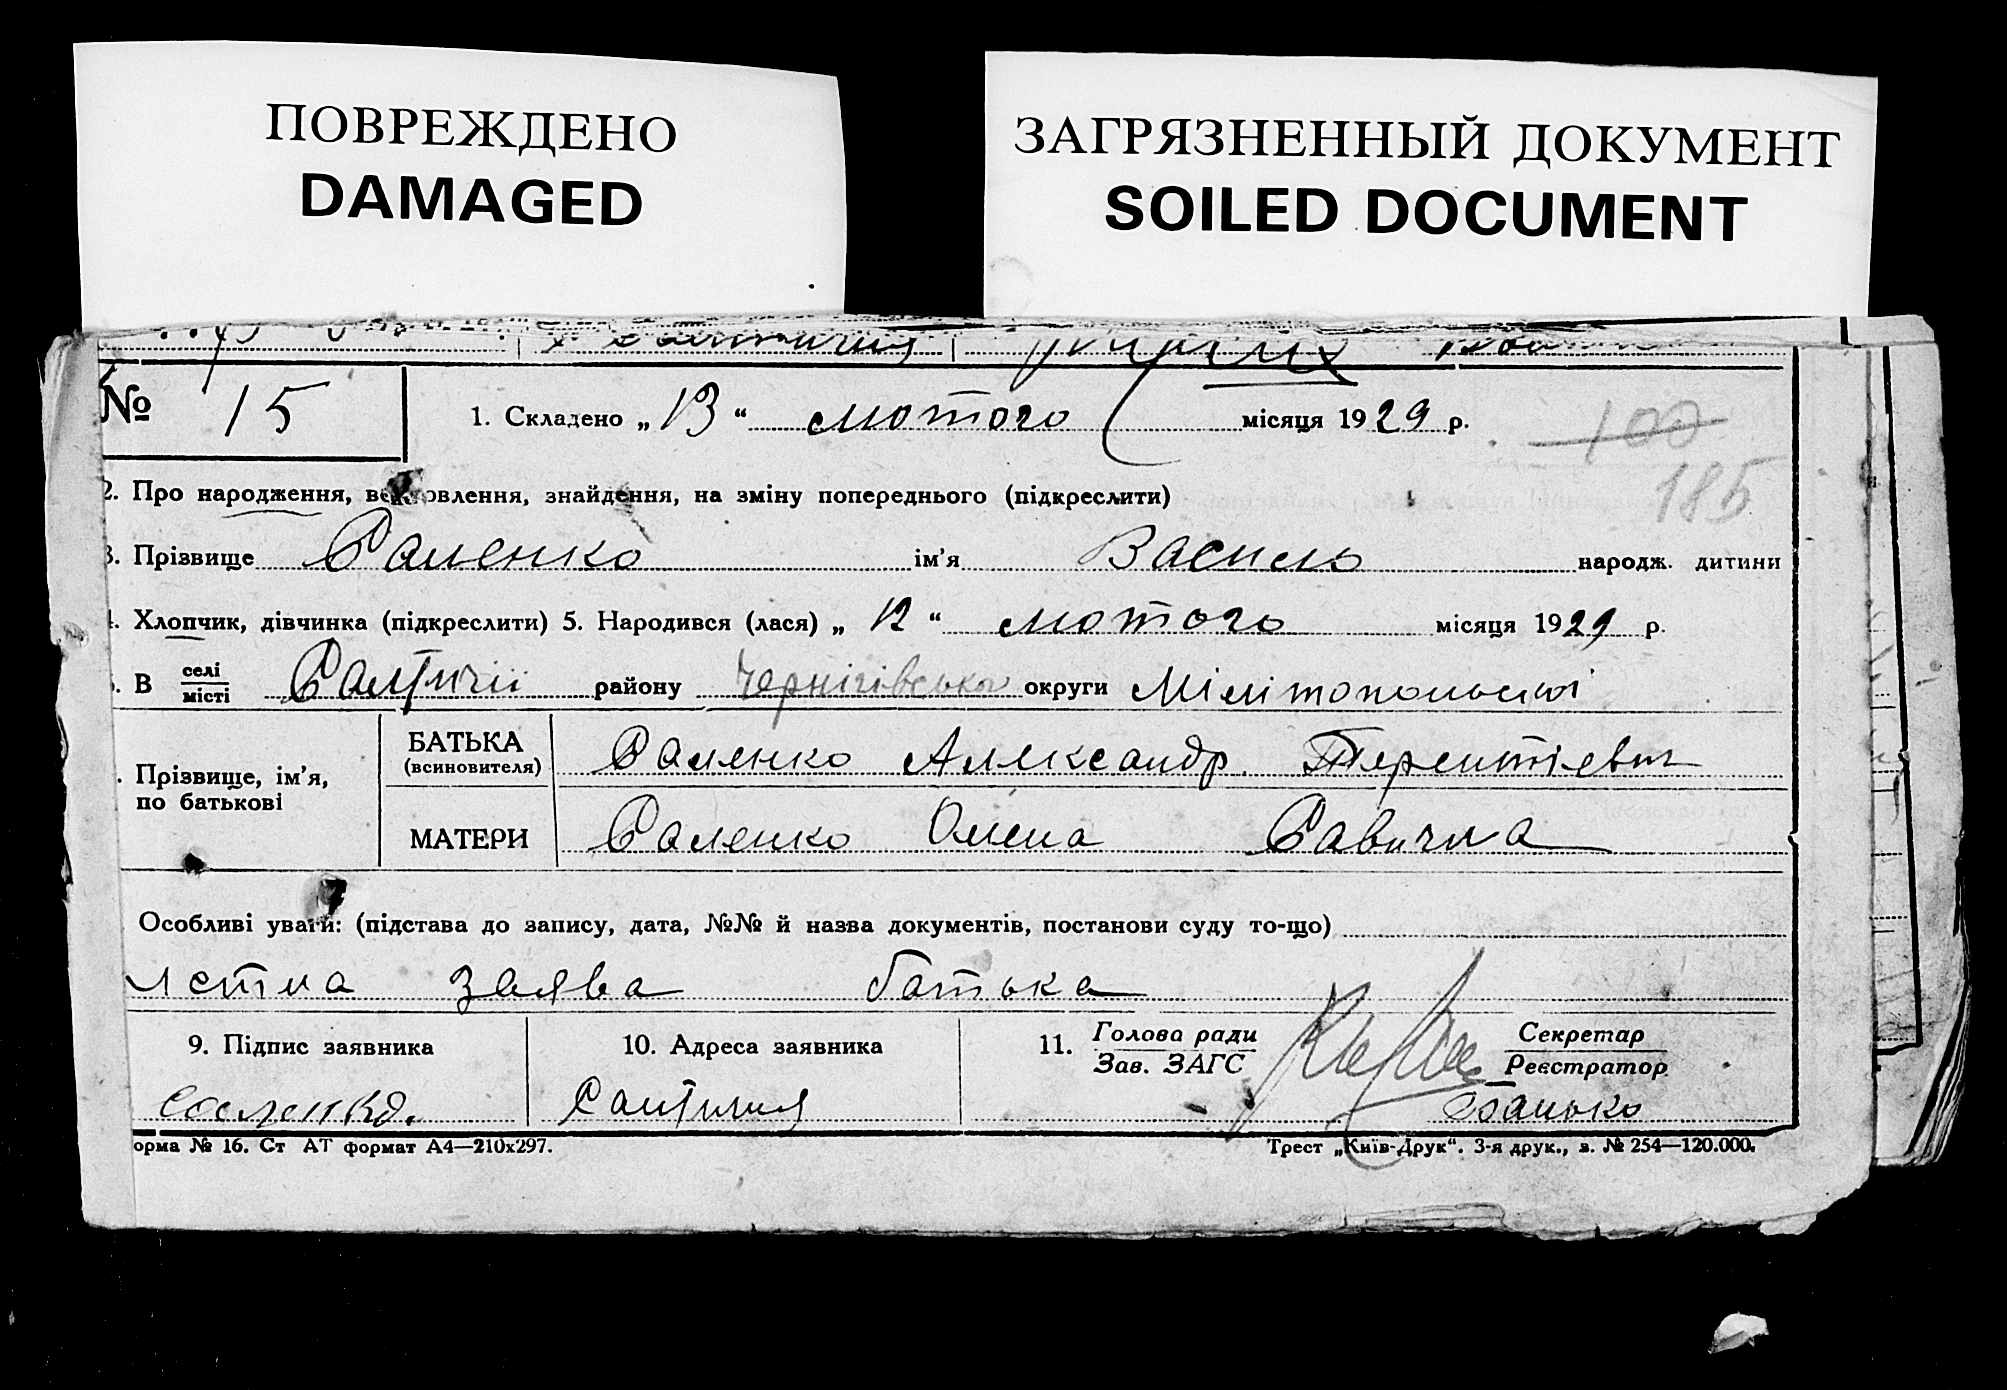 ПОВРЕЖДЕНО
DAMAGED
ЗАГРЯЗНЕННЫЙ ДОКУМЕНТ
SOILED DOCUMENT
№ 15
1. Складено „13“ лютого місяця 1929 р.
100
185
2. Про народження, в овлення, знайдення, на зміну попереднього (підкреслити)
3. Прізвище Саленко ім'я Василь народж. дитини
4. Хлопчик, дівчинка (підкреслити) 5. Народився (лася) „12“ лютого місяця 1929 р.
В селі місті Салтичіі району Чернігівсько округи Мілітопольскі
Прізвище, ім'я, по батькові
БАТЬКА (всиновителя) Саленко Александр Терентіевич
МАТЕРИ Саленко Олена Савична
Особливі уваги: (підстава до запису, дата, №№ й назва документів, постанови суду то-що)
устна заява батька
9. Підпис заявника
10. Адреса заявника
11. Голова ради Зав. ЗАГС
Секретар Реєстратор
Саленко.
Салтичия
орма № 16. Ст АТ формат А4—210х297.
Трест „Київ-Друк“. 3-я друк., з. № 254—120.000.